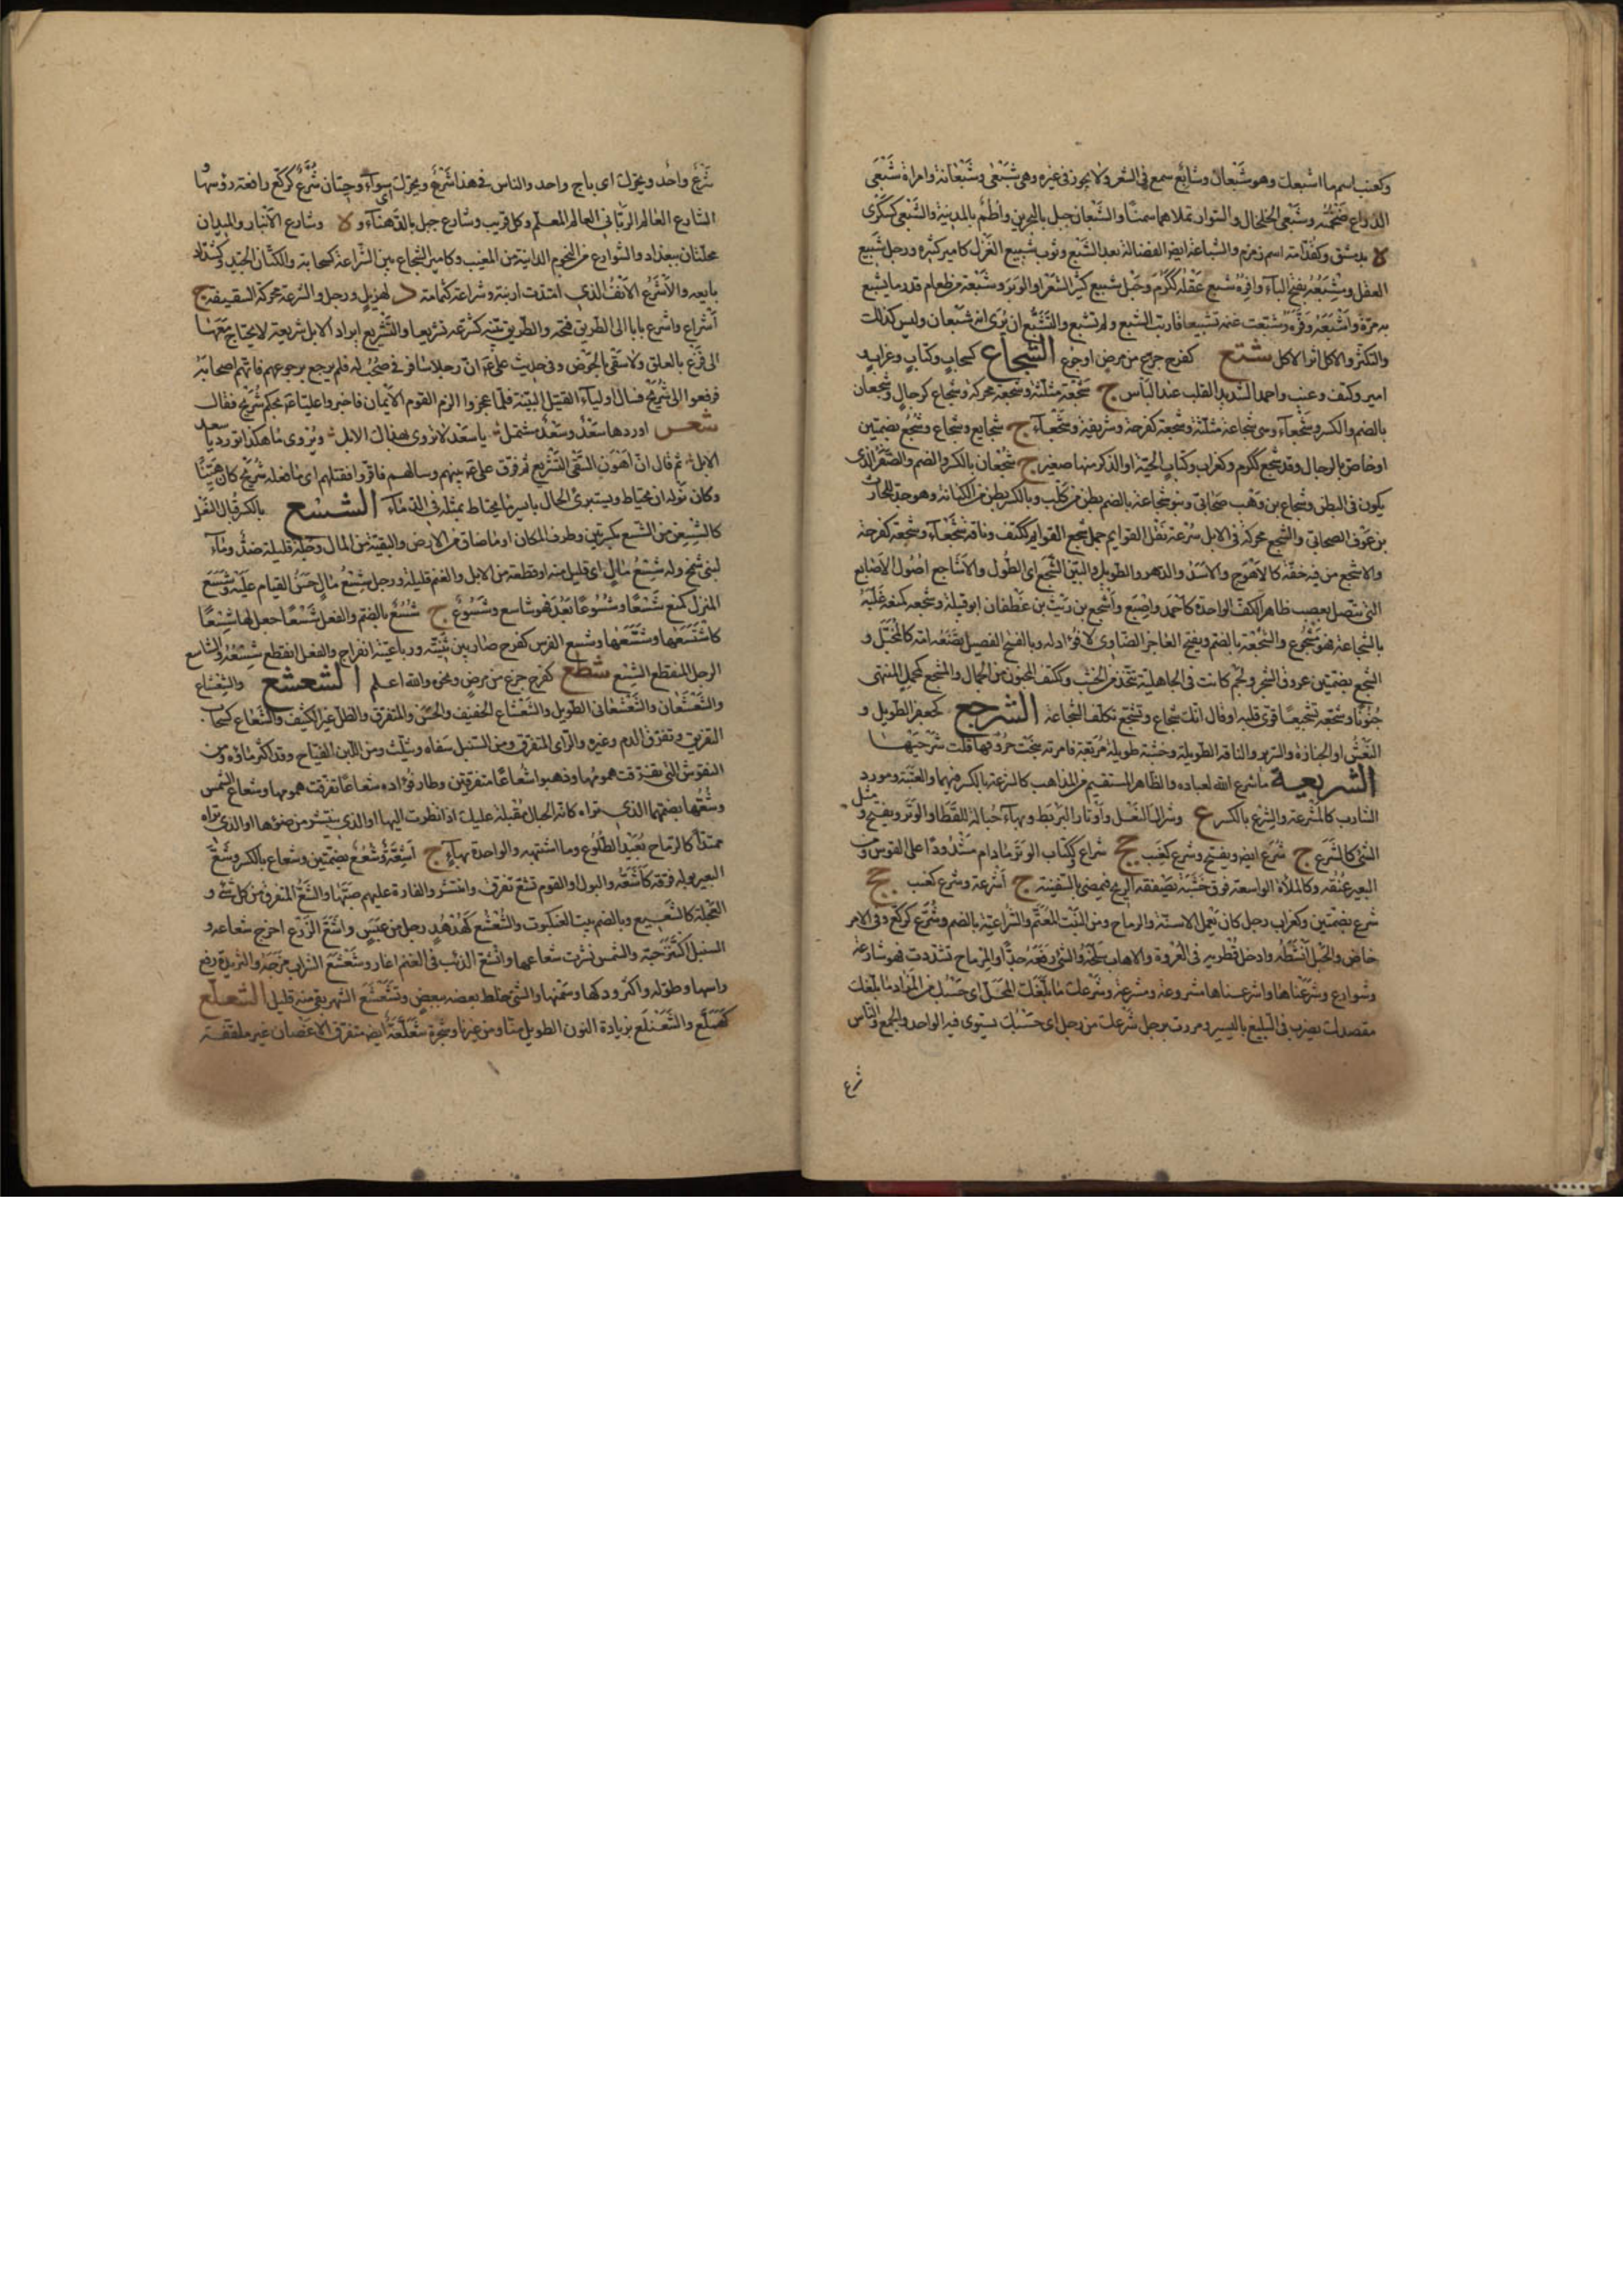 وكعنب اسم ما اشبعك وهو شَبْعانُ وشابع سمع في الشعر ولا يجوز في غيره وهي شَبْعَى وشَبْعانة وامراة شَبْعَى
الذراع ضخمته وشَبْعَى الخلخال والسوار تملاهما سمنًا والشَّبْعان جبل بالبحرين وأُطُم بالمدينة والشَّبْعَى كسَكْرَى
ة بدمشق وكقُدامة اسم زمزم والشباعة ايضا الفضالة بعد الشبع وثوب شبيع الغزل كامير كثيره ورجل شبيع
العقل ومُشْبَعُه بفتح الباء وافره شبع عقله ككرم وحبل شبيع كثير الشعر او الوبر وشبعة من طعام قدر ما يشبع
به مرة واشبعه وفره وشبعت غنمه تشبيعا قاربت الشبع ولم تشبع والتشبع ان يرى انه شبعان وليس كذلك
والتكثر والاكل اثر الاكل شتع كفرح جزع من مرض او جوع الشجاع كسحاب وكتاب وغراب و
امير وكتف وعنبة واحمد الشديد القلب عند الباس ج شجعة مثلثة وشجعة محركة وشجاع كرجال وشجعان
بالضم والكسر وشجعآء وهي شجاعة مثلثة وشجعة كفرحة وشريفة وشجعآء ج شجايع وشجاع وشجع بضمتين
او خاص بالرجال وقد شجع ككرم وكغراب وكتاب الحية او الذكر منها صغير ج شجعان بالكسر والضم والصَّقَر الذي
يكون في البطن وشجاع بن وهب صحابي وبنو شجاعة بالضم بطن من كلب وبالكسر بطن من الكنانة وهو جد للحارث
بن عوف الصحابي والشجع محركة في الابل سرعة نقل القوايم جمل شجع القوايم ككتف وناقة شجعآء وشجعة كفرحة
والاشجع من فيه خفة كالاهوج والاسد والدهر والطويل والبين الشجع اي الطول والاشاجع اصول الاصابع
التي تتصل بعصب ظاهر الكف الواحدة كاحمد واصبع واشجع بن ريث بن غطفان ابو قبيلة وشجعه كمنعه غلبه
بالشجاعة فهو مشجوع والشجعة بالضم ويفتح العاجز الضاوي لا فؤاد له وبالفتح الفصيل تضعه امه كالمخبل و
الشجع بضمتين عروق الشجر ولجم كانت في الجاهلية تتخذ من الخشب وككتف المجنون من الجمال والمشجع كمجمل المنتهى
جنونا وشجعه تشجيعا قوى قلبه او قال انك شجاع وتشجع تكلف الشجاعة الشرجع كجعفر الطويل و
النعش او الجنازة والسرير والناقة الطويلة وخشبة طويلة مربعة فامرته بنحت حروفها قلت شرجعها
الشريعة ما شرع الله لعباده والظاهر المستقيم من المذاهب كالشرعة بالكسر فيهما والعتبة ومورد
الشاربة كالمشرعة والشرع بالكسر ع وشراك النعل واوتار البربط وبهآء حبالة للقطا والوتر ويفتح ومثل
الشئ كالشرع ج شرع ايضا ويفتح وشرع كعنب جج شراع وككتاب الوتر ما دام مشدودًا على القوس ومن
البعير عنقه وكالملاءة الواسعة فوق خشبة تصفقه الريح فيمضي بالسفينة ج اشرعة وشرع كعنب جج
شرع بضمتين وكغراب رجل كان يعمل الاسنة والرماح ومن النبت المعتم والشراعية بالضم وشرع كركع وفي الامر
خاض والحبل انشطه وادخل قطريه في العروة والاهاب سلخه والشئ رفعه جدًا والرماح تسددت فهو شارعة
وشوارع وشرعناها واشرعناها مشروعة ومشرعة وشرعك ما بلغك المحل اي حسبك من الزاد ما بلغك
مقصدك يضرب في التبليغ باليسير ومررت برجل شرعك من رجل اي حسبك يستوي فيه الواحد والجمع والناس
شرع
شرع واحد ويحرك اي باج واحد والناس في هذا شرع ويحرك اي سوآء وحيتان شرع كركع رافعة رؤسها و
الشارع العالم الرباني العامل المعلم وكل قريب وشارع جبل بالدهنآء و ة وشارع الانبار والميدان
محلتان ببغداد والشوارع من النجوم الدانية من المغيب وكامير الشجاع بين الشراعة كسحابة والكتان الجيد وكشداد
بايعه والاشرع الانف الذي امتدت ارنبته وشراعة كثمامة د لهذيل ورجل والشرعة محركة السقيفة ج
أشراع واشرع بابا الى الطريق فتحه والطريق بينه كشرعه تشريعا والتشريع ايراد الابل شريعة لا يحتاج معها
الى نزع بالعلق ولا سقي بالحوض وفي حديث على رضه ان رجلا سافر في صحب له فلم يرجع برجوعهم فاتهم اصحابه
فرفعوا الى شريح فسال اولياء القتيل البينة فلما عجزوا الزم القوم الايمان فاخبروا عليا رضه بحكم شريح فقال
شعـر اوردها سعد وسعد مشتمل ٭ يا سعد لا تروى بهذاك الابل ٭ ويروى ما هكذا تورد يا سعد
الابل ٭ ثم قال ان اهون السقي التشريع ثم فرق على بينهم وسالهم فاقروا فقتلهم اي ما فعله شريح كان هينًا
وكان نوله ان يحتاط ويستبرئ الحال بايسر ما يحتاط بمثله في الدمآء الشسع بالكسر قبال النعل
كالشسعن من الشسع بكسرتين وطرف المكان او ما ضاق من الارض والبقية من المال وجله قليله ضد ومآء
لبني شمخ وله شسع مال اي قليل منه او قطعة من الابل والغنم قليلة ورجل شسع مال حسن القيام عليه وشسع
المنزل كمنع شسعًا وشسوعًا بعد فهو شاسع وشسوع ج شسع بالضم والفعل شسعا جعل لها شسعًا
كاشسعها وشسعها وشسع الفرس كفرح صار بين ثنيته ورباعيته انفراج والفعل انقطع شسعه والشاسع
الرجل المنقطع الشسع شطع كفرح جزع من مرض ونحوه والله اعلم الشعشع والشعشاع
والشعشعان والشعشعاني الطويل والشعشاع الخفيف والحسن والمتفرق والظل غير الكثيف والشعاع كسحاب
التفريق وتفرق الدم وغيره والراي المتفرق ومن السنبل سفاه ويثلث ومن اللبن الضياح وقد اكثر ماؤه ومن
النفوس التي تفرقت همومها وذهبوا شعاعا متفرقين وطار فؤاده شعاعا تفرقت همومها وشعاع الشمس
وشعها بضمهما الذي تراه كانه الحبال مقبلة عليك اذا نظرت اليها او الذي ينتشر من ضوئها او الذي تراه
ممتدا كالرماح بعيد الطلوع وما اشبهه والواحدة بهآء ج اشعة وشعع بضمتين وشعاع بالكسر وشع
البعير بوله فرقه كاشعه والبول او القوم تشع تفرق وانتشر والغارة عليهم صبها والشع المتفرق من كل شئ و
العجلة كالشعيع وبالضم بيت العنكبوت والشعشع كهدهد رجل من عبس واشع الزرع اخرج شعاعه و
السنبل اكتنز حبه والشمس نشرت شعاعها وانشع الذئب في الغنم اغار وشعشع الشراب مزجه والثريدة رفع
راسها وطوله واكثر ودكها وسمنها والشئ خلط بعضه ببعض وتشعشع الشهر بقي منه قليل الشعلع
كهملع والشعنلع بزيادة النون الطويل منا ومن غيرنا وشجرة شعلعة ايضا متفرقة الاغصان غير ملتفة